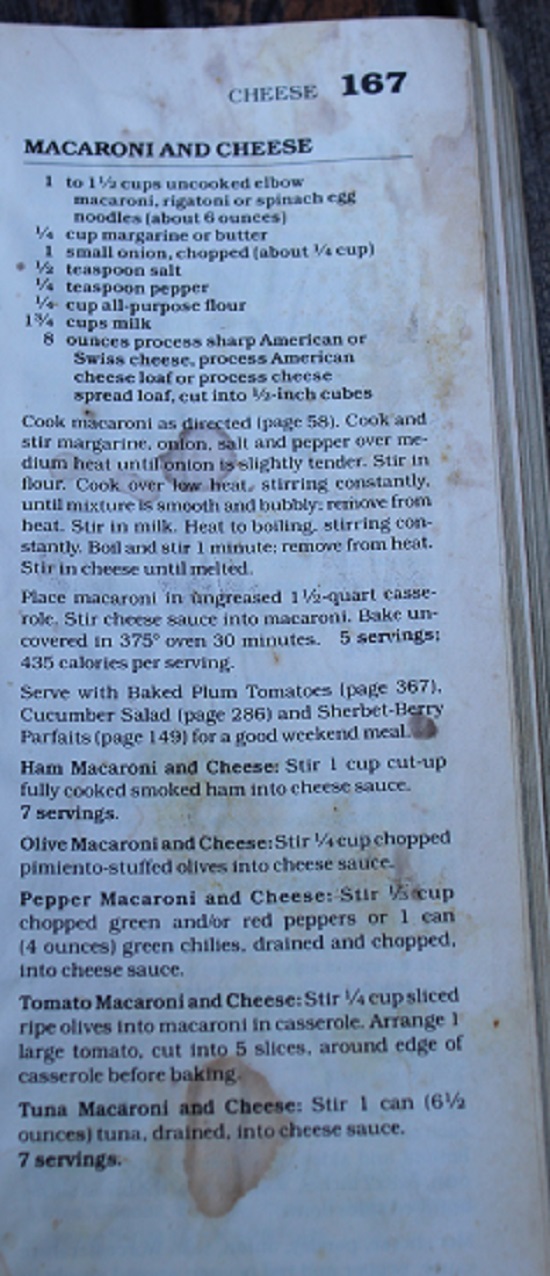 CHEESE 167
MACARONI AND CHEESE
1 to 1½ cups uncooked elbow
macaroni, rigatoni or spinach egg
noodles (about 6 ounces)
¼ cup margarine or butter
1 small onion, chopped (about ¼ cup)
½ teaspoon salt
¼ teaspoon pepper
¼ cup all-purpose flour
1¾ cups milk
8 ounces process sharp American or
Swiss cheese, process American
cheese loaf or process cheese
spread loaf, cut into ½-inch cubes
Cook macaroni as directed (page 58). Cook and
stir margarine, onion, salt and pepper over me-
dium heat until onion is slightly tender. Stir in
flour. Cook over low heat, stirring constantly,
until mixture is smooth and bubbly; remove from
heat. Stir in milk. Heat to boiling, stirring con-
stantly. Boil and stir 1 minute; remove from heat.
Stir in cheese until melted.
Place macaroni in ungreased 1½-quart casse-
role. Stir cheese sauce into macaroni. Bake un-
covered in 375° oven 30 minutes. 5 servings;
435 calories per serving.
Serve with Baked Plum Tomatoes (page 367),
Cucumber Salad (page 286) and Sherbet-Berry
Parfaits (page 149) for a good weekend meal.
Ham Macaroni and Cheese: Stir 1 cup cut-up
fully cooked smoked ham into cheese sauce.
7 servings.
Olive Macaroni and Cheese: Stir ¼ cup chopped
pimiento-stuffed olives into cheese sauce.
Pepper Macaroni and Cheese: Stir ⅓ cup
chopped green and/or red peppers or 1 can
(4 ounces) green chilies, drained and chopped,
into cheese sauce.
Tomato Macaroni and Cheese: Stir ¼ cup sliced
ripe olives into macaroni in casserole. Arrange 1
large tomato, cut into 5 slices, around edge of
casserole before baking.
Tuna Macaroni and Cheese: Stir 1 can (6½
ounces) tuna, drained, into cheese sauce.
7 servings.